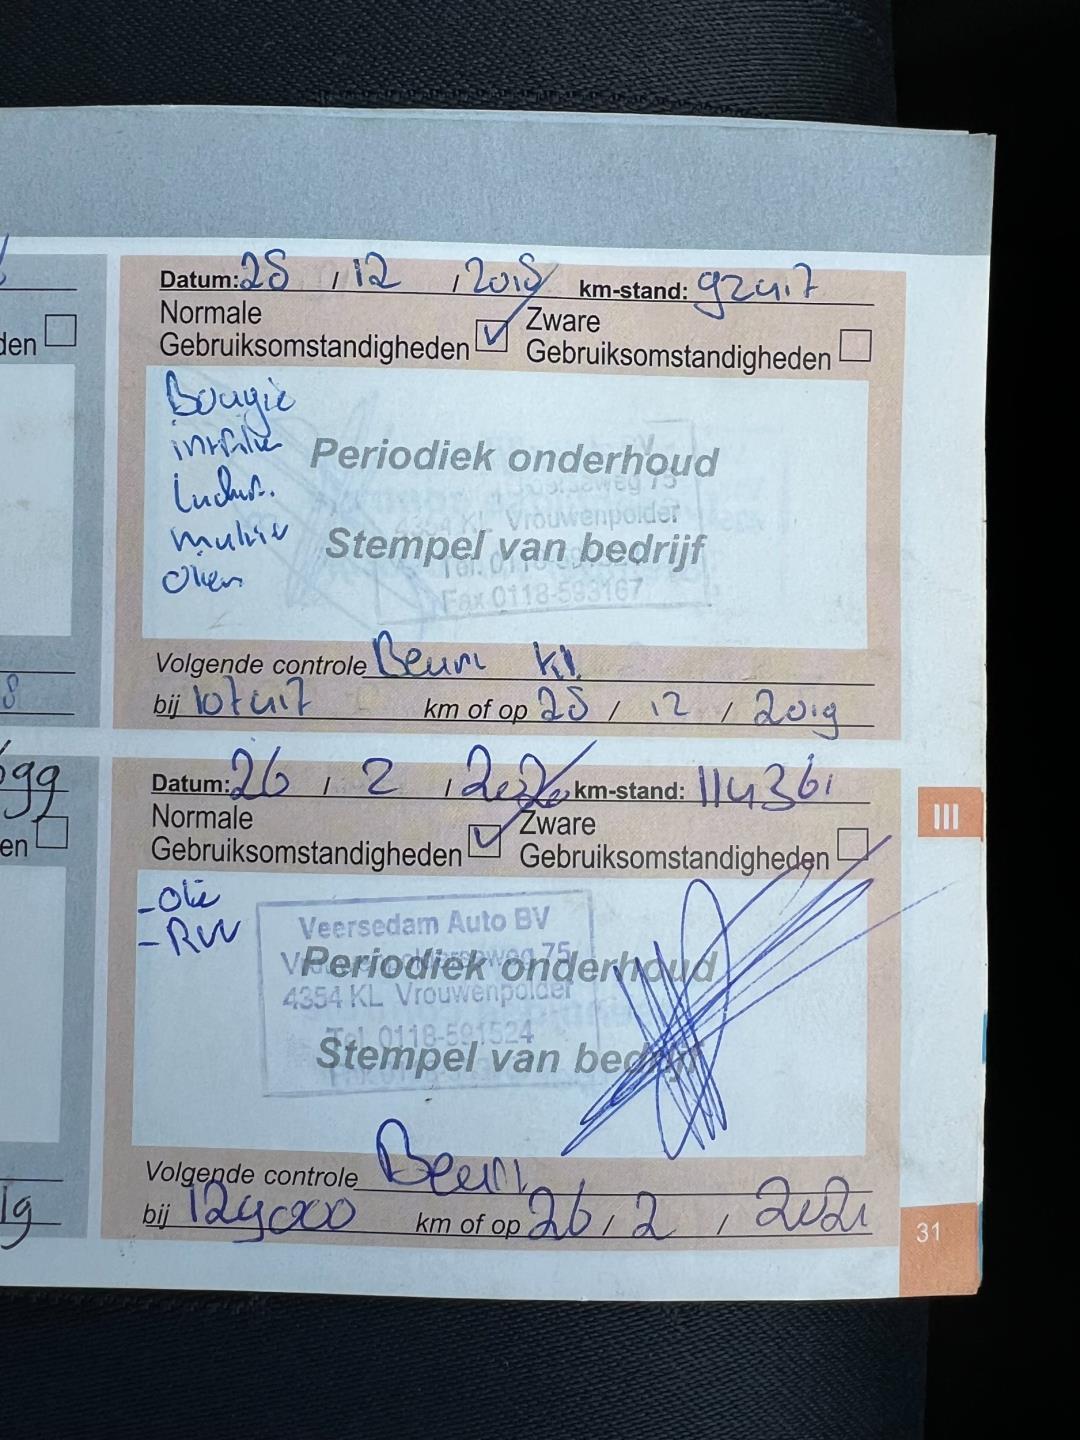 Datum: 28 / 12 / 2018 km-stand: 92417
Normale Gebruiksomstandigheden
Zware Gebruiksomstandigheden
den
Bougie
Periodiek onderhoud
4354 KL Vrouwenpolder
Stempel van bedrijf
Fax 0118-593167
Volgende controle Beurt kl.
bij 107417 km of op 28 / 12 / 2019
8
99
Datum: 26 / 2 / 2020 km-stand: 114361
Normale Gebruiksomstandigheden
Zware Gebruiksomstandigheden
en
- Olie
- RVV
Veersedam Auto BV
75
Periodiek onderhoud
4354 KL Vrouwenpolder
Tel. 0118-591524
Stempel van bedrijf
Volgende controle Beurt
bij 129000 km of op 26 / 2 / 2021
19
III
31